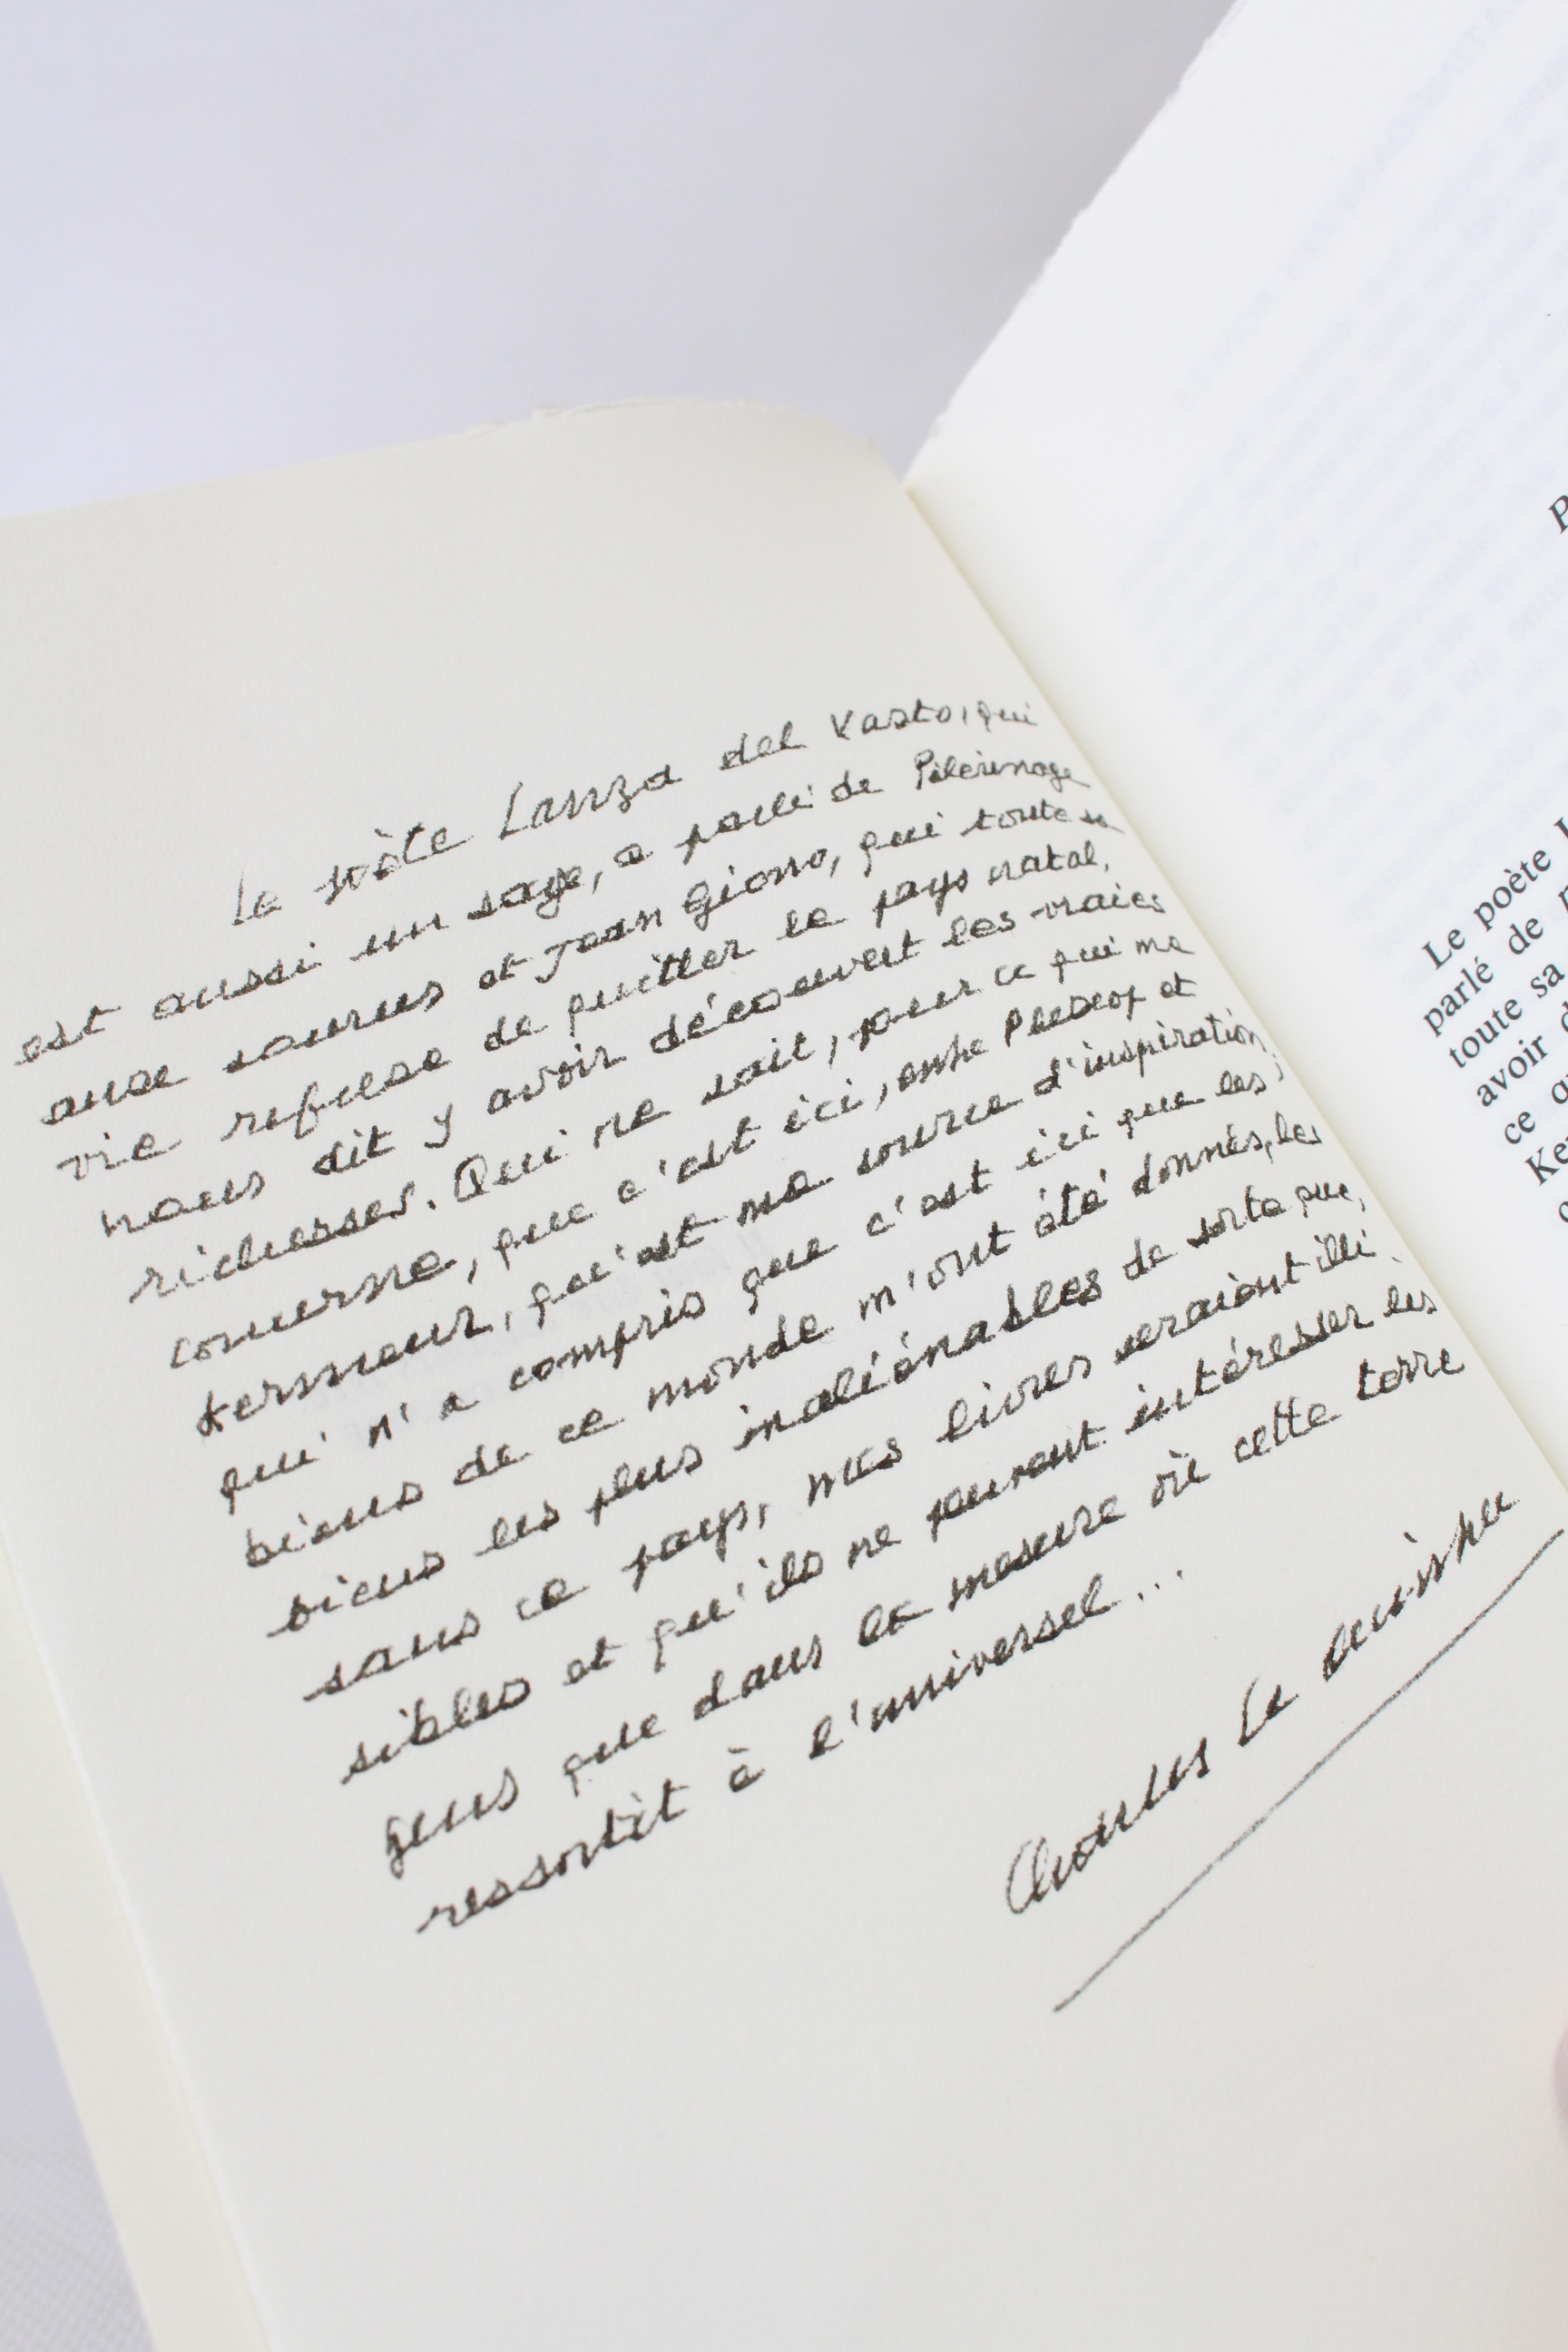 Le poète Lanza del Vasto, qui
est aussi un sage, a parlé de Pélerinage
aux sources et Jean Giono, qui toute sa
vie refusa de quitter le pays natal,
nous dit y avoir découvert les vraies
richesses. Qui ne sait, pour ce qui me
concerne, que c'est ici, entre Plescop et
Kermeur, qu'est ma source d'inspiration,
qui n'a compris que c'est ici que les
biens de ce monde m'ont été donnés, les
biens les plus inaliénables de sorte que,
sans ce pays, mes livres seraient illi-
sibles et qu'ils ne peuvent intéresser les
gens que dans la mesure où cette terre
ressortit à l'universel...
Charles Le Quintrec
P
Le poète L
parlé de p
toute sa
avoir d
ce qu
Ke